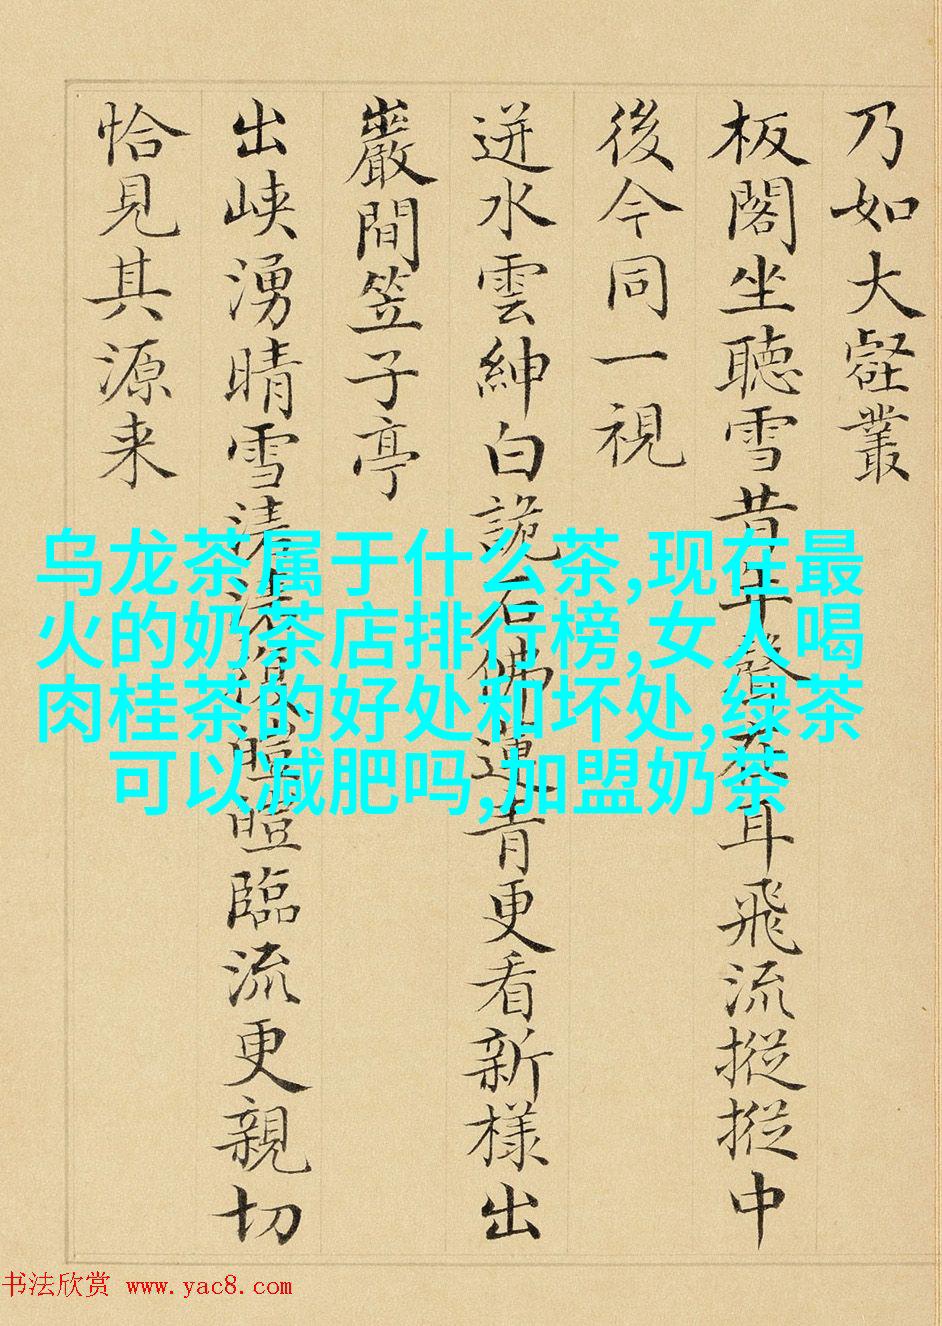 乃如大壑叢
板閣坐聽雪昔年聲在耳飛流摐摐中
後今同一視
迸水雲紳白詭石佛蓮青更看新樣出
巖間笠子亭
出峽湧晴雪淒淒深皚皚臨流更親切
恰見其源来
乌龙茶属于什么茶,现在最
火的奶茶店排行榜,女人喝
肉桂茶的好处和坏处,绿茶
可以减肥吗,加盟奶茶
书法欣赏 www.yac8.com